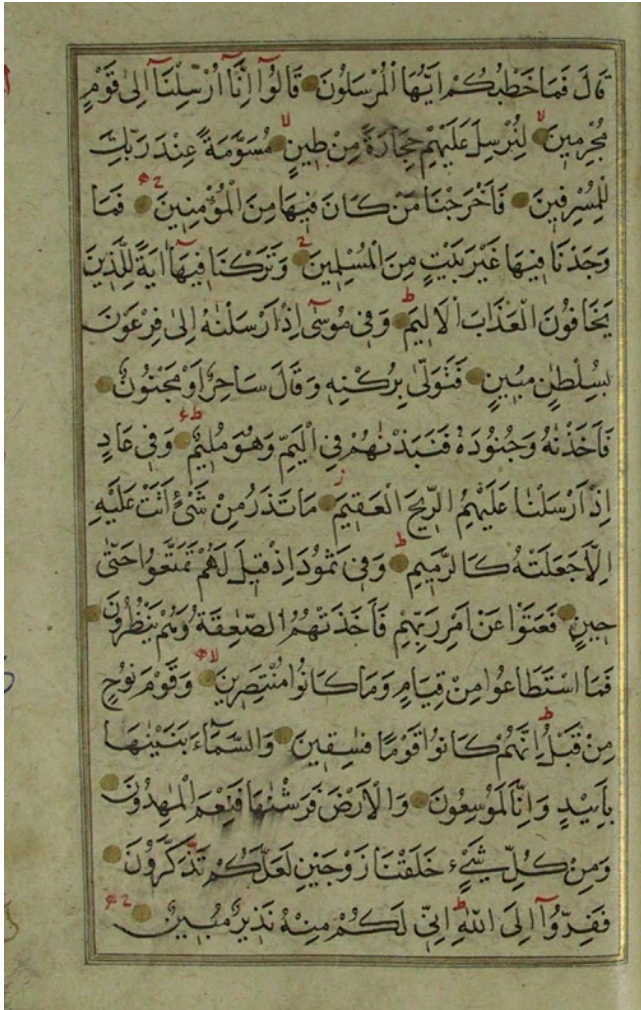 قَالَ فَمَا خَطْبُكُمْ اَيُّهَا الْمُرْسَلُونَ قَالُوٓا اِنَّٓا اُرْسِلْنَٓا اِلٰى قَوْمٍ
مُجْرِمِينَ لِنُرْسِلَ عَلَيْهِمْ حِجَارَةً مِنْ طِينٍ مُسَوَّمَةً عِنْدَ رَبِّكَ
لِلْمُسْرِفِينَ فَاَخْرَجْنَا مَنْ كَانَ فِيهَا مِنَ الْمُؤْمِنِينَ فَمَا
وَجَدْنَا فِيهَا غَيْرَ بَيْتٍ مِنَ الْمُسْلِمِينَ وَتَرَكْنَا فِيهَٓا اٰيَةً لِلَّذِينَ
يَخَافُونَ الْعَذَابَ الْاَلِيمَ وَفِي مُوسٰٓى اِذْ اَرْسَلْنٰهُ اِلٰى فِرْعَوْنَ
بِسُلْطٰنٍ مُبِينٍ فَتَوَلّٰى بِرُكْنِهِ وَقَالَ سَاحِرٌ اَوْ مَجْنُونٌ
فَاَخَذْنٰهُ وَجُنُودَهُ فَنَبَذْنٰهُمْ فِي الْيَمِّ وَهُوَ مُلِيمٌ وَفِي عَادٍ
اِذْ اَرْسَلْنَا عَلَيْهِمُ الرِّيحَ الْعَقِيمَ مَا تَذَرُ مِنْ شَيْءٍ اَتَتْ عَلَيْهِ
اِلَّا جَعَلَتْهُ كَالرَّمِيمِ وَفِي ثَمُودَ اِذْ قِيلَ لَهُمْ تَمَتَّعُوا حَتّٰى
حِينٍ فَعَتَوْا عَنْ اَمْرِ رَبِّهِمْ فَاَخَذَتْهُمُ الصّٰعِقَةُ وَهُمْ يَنْظُرُونَ
فَمَا اسْتَطَاعُوا مِنْ قِيَامٍ وَمَا كَانُوا مُنْتَصِرِينَ وَقَوْمَ نُوحٍ
مِنْ قَبْلُ اِنَّهُمْ كَانُوا قَوْمًا فٰسِقِينَ وَالسَّمَٓاءَ بَنَيْنٰهَا
بِاَيْيدٍ وَاِنَّا لَمُوسِعُونَ وَالْاَرْضَ فَرَشْنٰهَا فَنِعْمَ الْمٰهِدُونَ
وَمِنْ كُلِّ شَيْءٍ خَلَقْنَا زَوْجَيْنِ لَعَلَّكُمْ تَذَكَّرُونَ
فَفِرُّوٓا اِلَى اللّٰهِ اِنِّي لَكُمْ مِنْهُ نَذِيرٌ مُبِينٌ